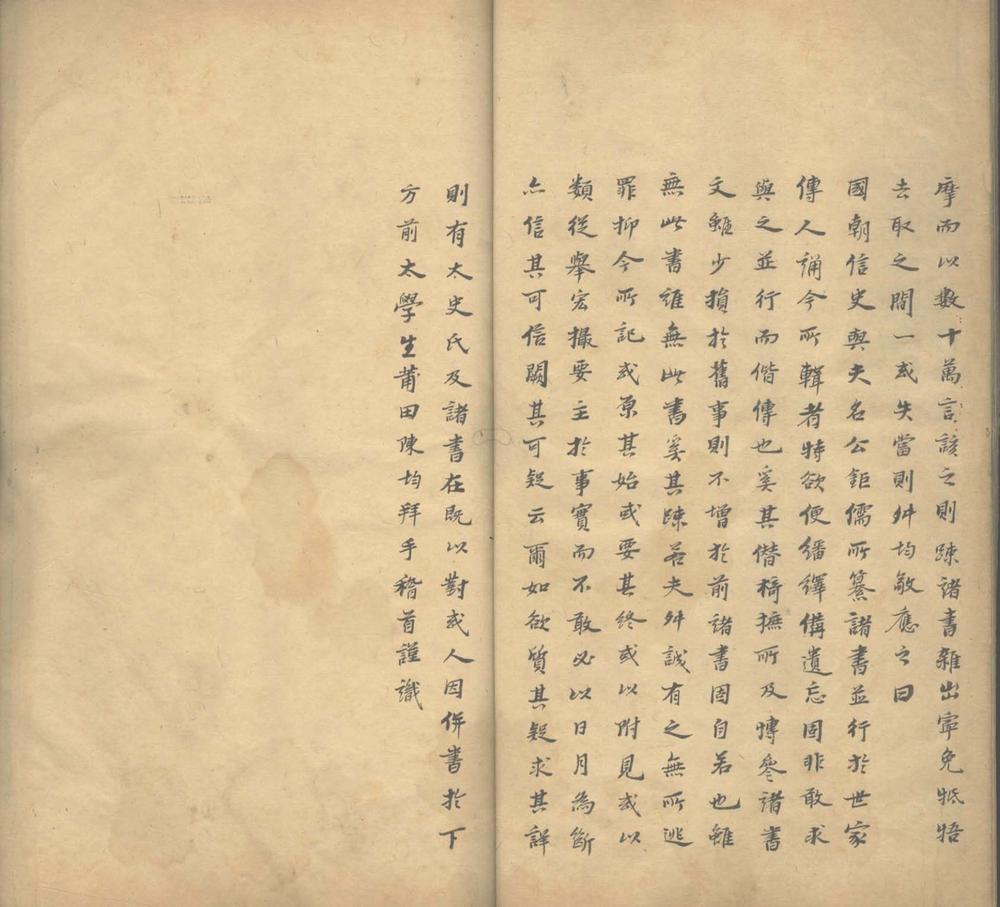 摩而以數十萬言該之則踈諸書雜出寧免牴牾
去取之間一或失當則舛均敬應之曰
國朝信史與夫名公鉅儒所纂諸書並行於世家
傳人誦今所輯者特欲便繙繹備遺忘固非敢求
與之並行而偕傳也奚其僣椅摭所及博叅諸書
文雖少損於舊事則不增於前諸書固自若也雖
無此書誰無此書奚其踈若夫舛誠有之無所逃
罪抑今所記或原其始或要其終或以附見或以
類從舉宏撮要主於事實而不敢必以日月為斷
亦信其可信闕其可疑云爾如欲質其疑求其詳
則有太史氏及諸書在既以對或人因併書於下
方前太學生莆田陳均拜手稽首謹識